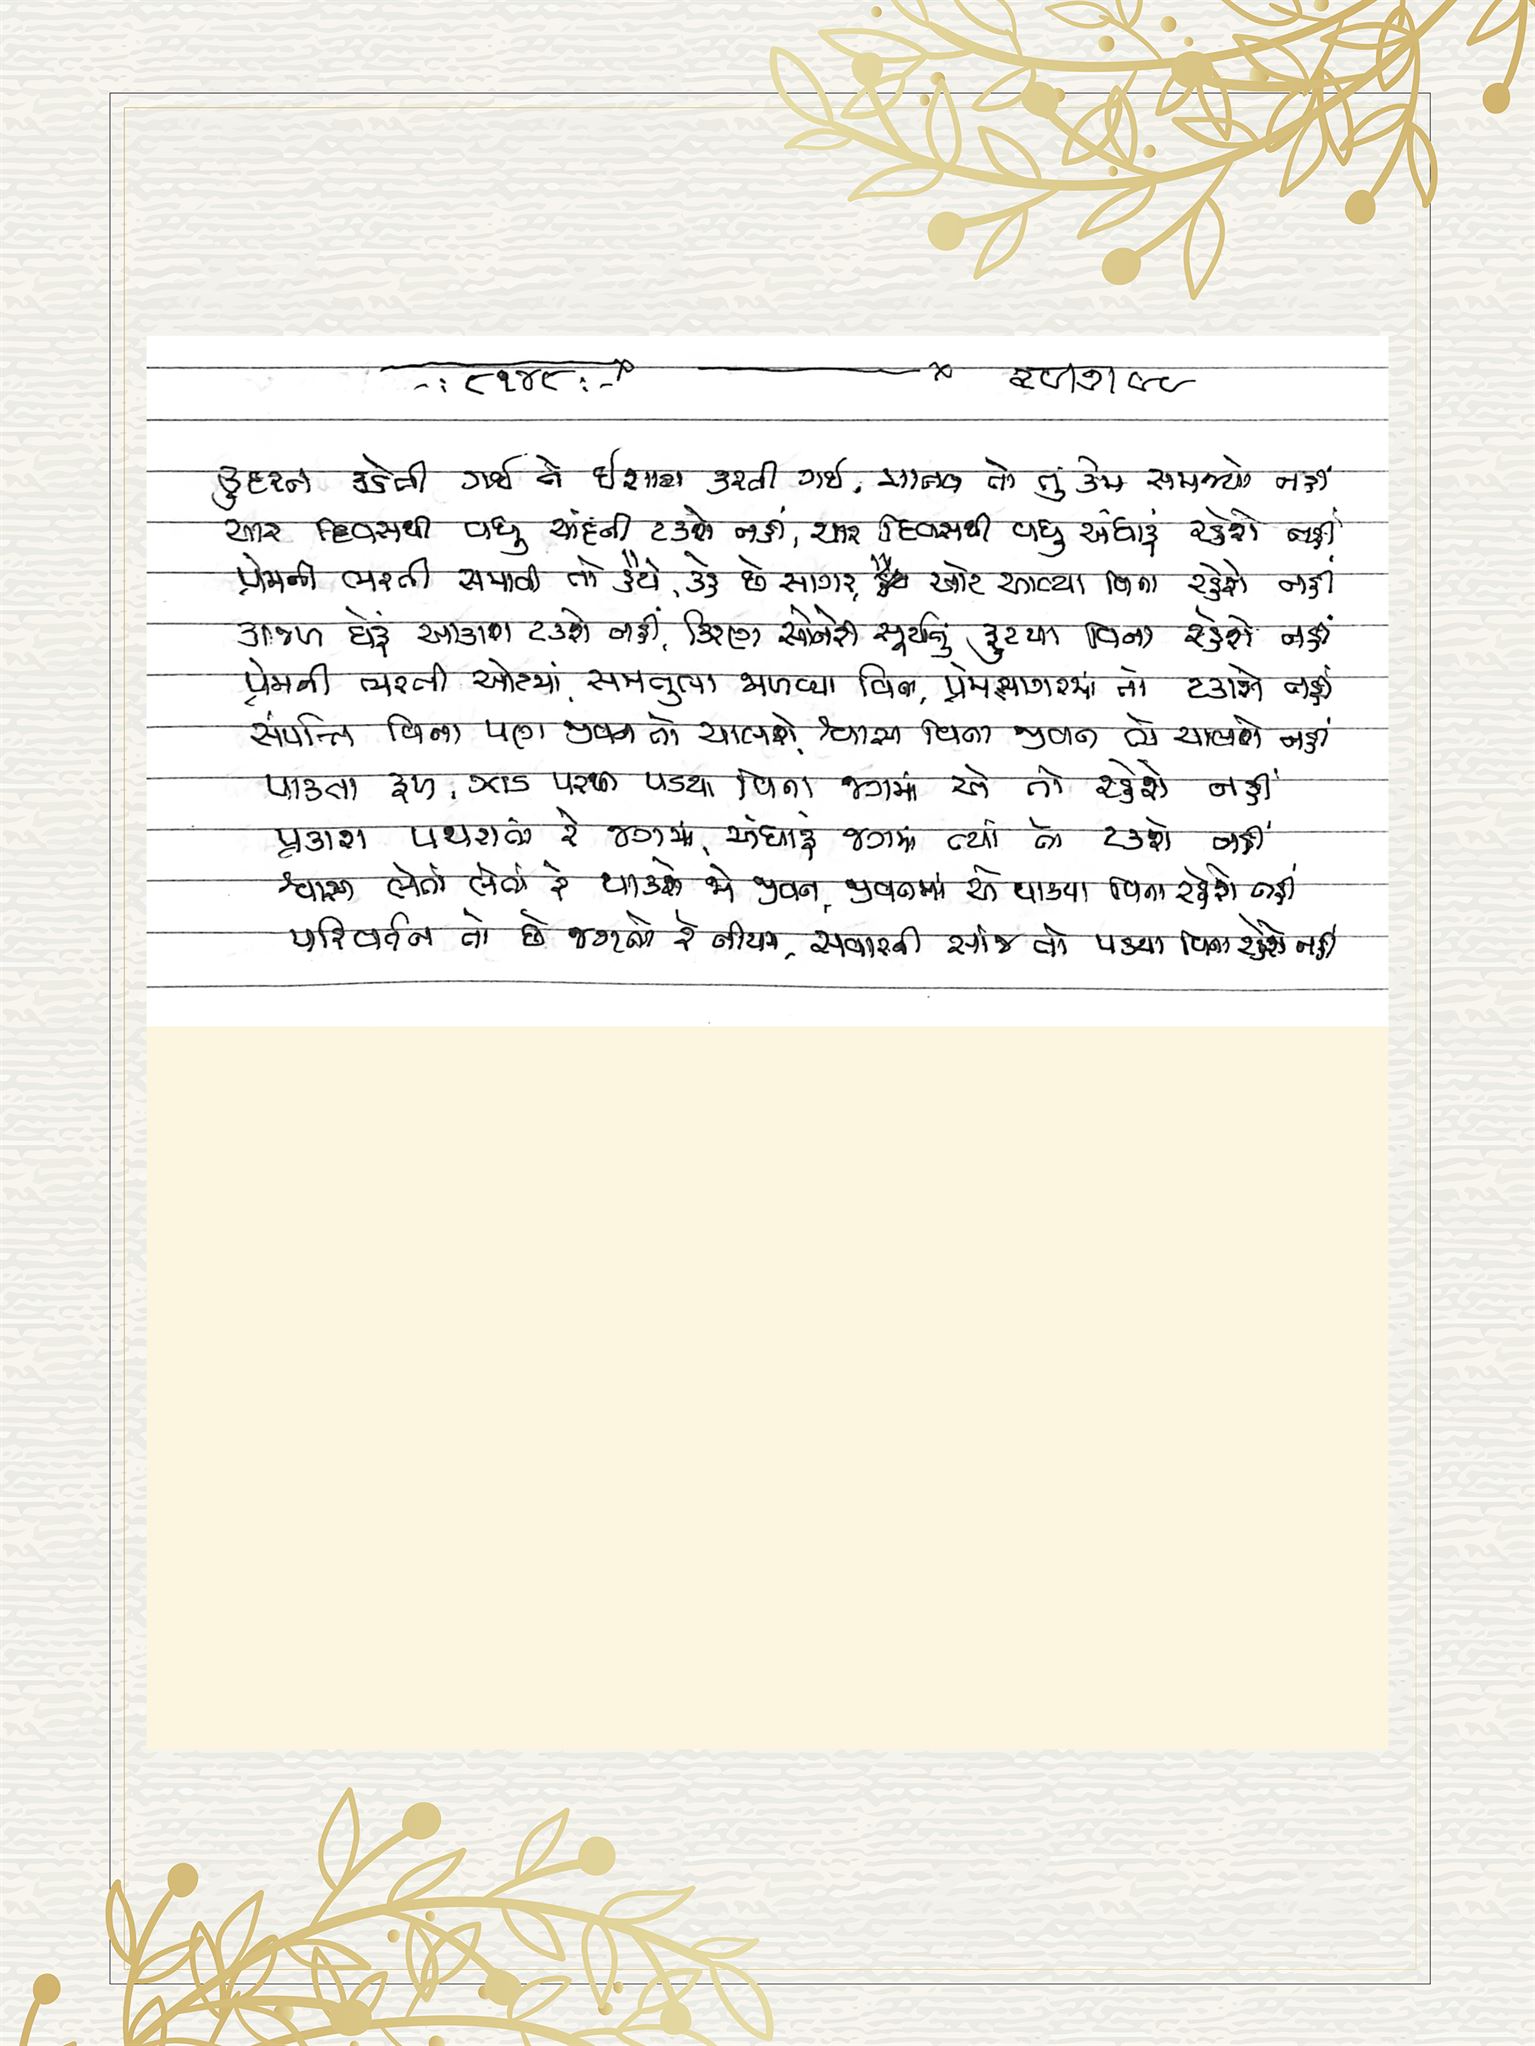 -: ૮૧૪૯ :-
કુદરત કહેતી ગઈ ને ઈશારા કરતી ગઈ, માનવ તો તું કેમ સમજ્યો નહીં
ચાર દિવસથી વધુ ચાંદની ટકશે નહીં, ચાર દિવસથી વધુ અંધારું રહેશે નહીં
પ્રેમની ભરતી સમાવી તો હૈયે, હૈયું છે સાગર, ઓટ આવ્યા વિના રહેશે નહીં
કાજળ ઘેરું આકાશ ટકશે નહીં, કિરણ સોનેરી સૂર્યનું ફુટયા વિના રહેશે નહીં
પ્રેમની ભરતી ઓટમાં, સમતુલા મળવ્યા વિના, પ્રેમસાગરમાં તો ટકાશે નહીં
સંપત્તિ વિના પણ જીવન તો ચાલશે, શ્વાસ વિના જીવન તો ચાલશે નહીં
પાકતા ફળ, ઝાડ પરથી પડયા વિના જગમાં એ તો રહેશે નહીં
પ્રકાશ પથરાતાં રે જગમાં, અંધારું જગમાં ત્યાં તો ટકશે નહીં
શ્વાસ લેતાં લેતાં રે થાકશે એ જીવન, જીવનમાં એ થાક્યા વિના રહેશે નહીં
પરિવર્તન તો છે જગતનો રે નીયમ, સવારની સાંજ તો પડયા વિના રહેશે નહીં